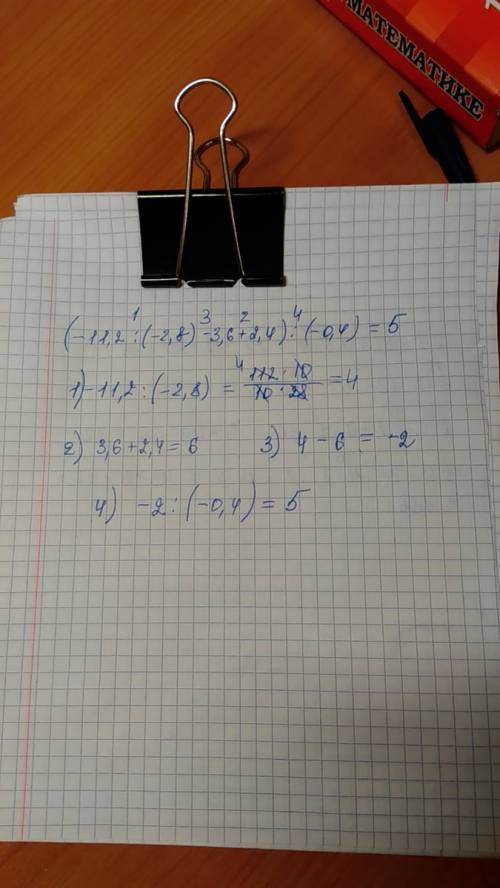 МАТЕМАТИКЕ
1 3 2 4
(-11,2 : (-2,8) - 3,6 + 2,4) : (-0,4) = 5
1) -11,2 : (-2,8) = 4 112 · 10 / 10 · 28 = 4
2) 3,6 + 2,4 = 6 3) 4 - 6 = -2
4) -2 : (-0,4) = 5